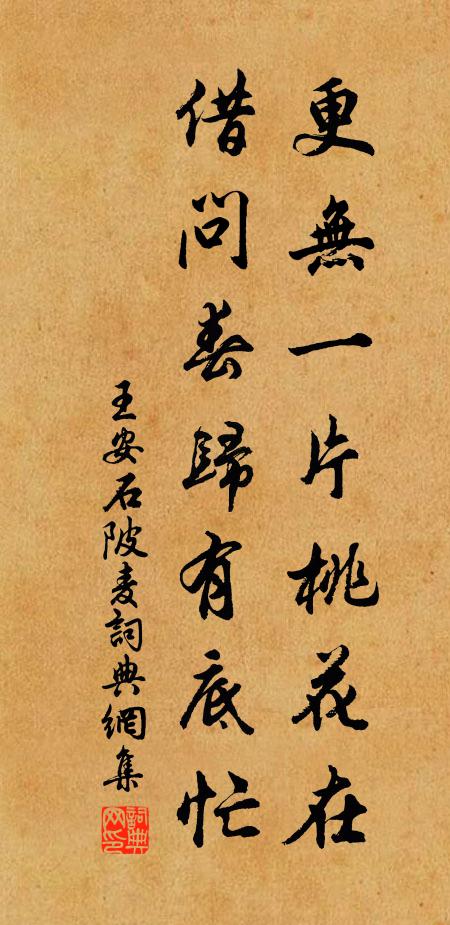 更無一片桃花在
借問春歸有底忙
王安石陂麦詞典網集
詞典网印